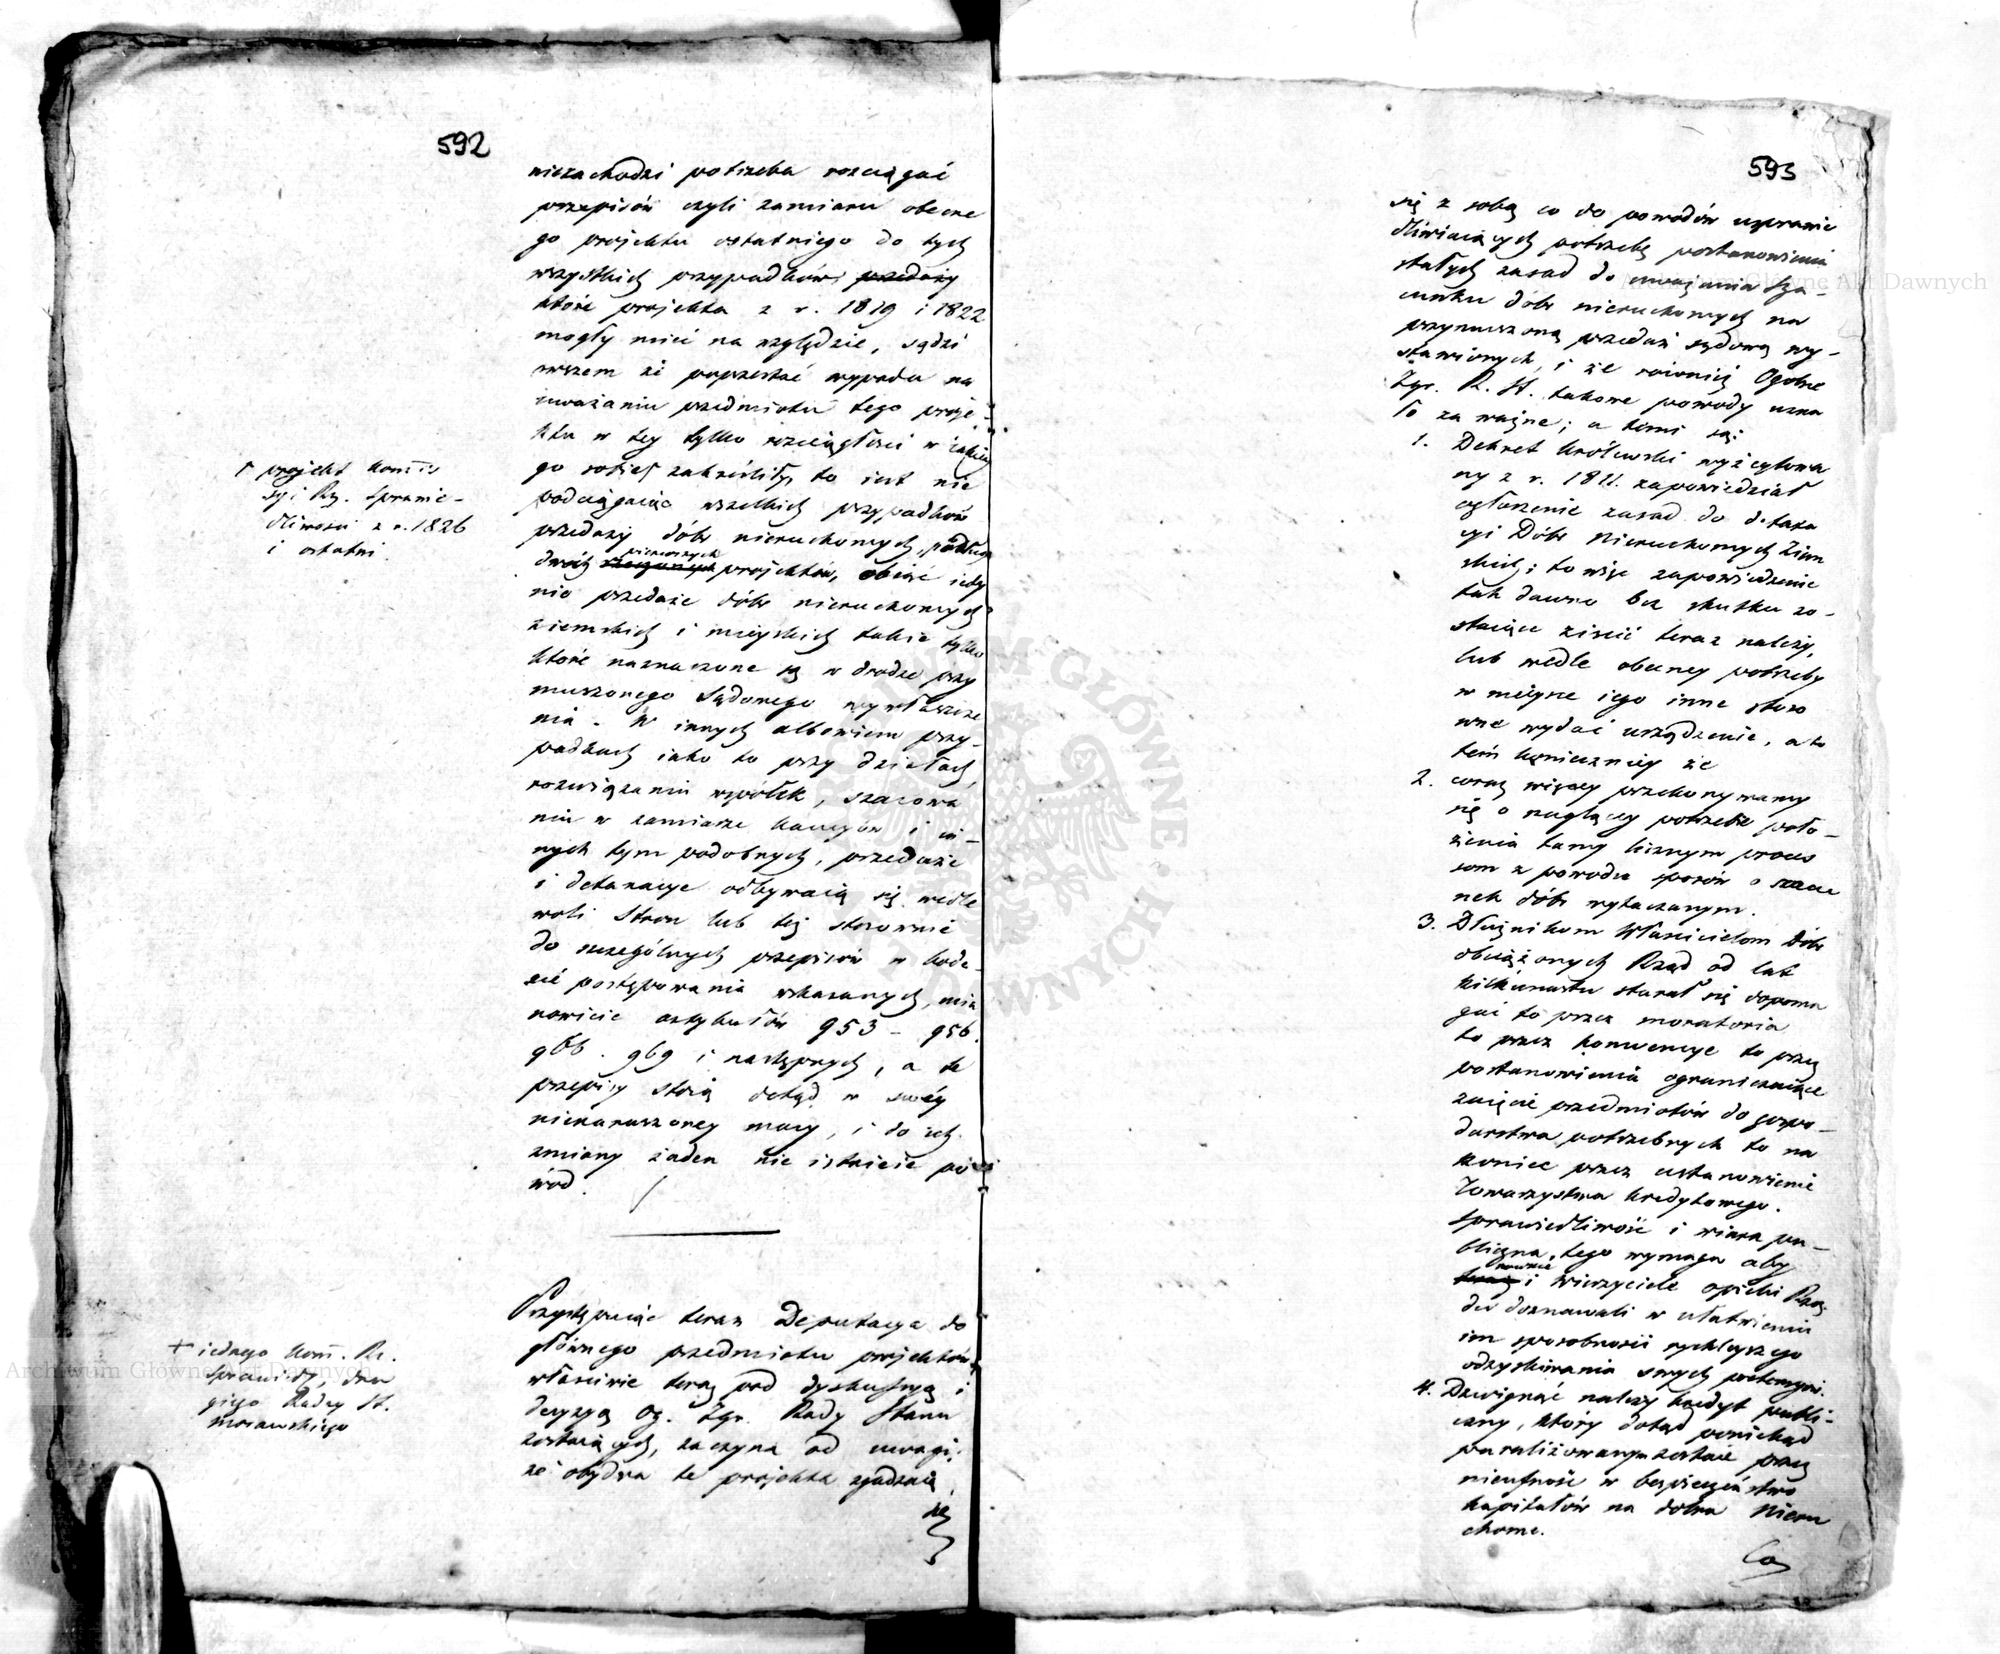 592
niezachodzi potrzeba rozciągać
przepisów czyli zamiaru obecne
go projektu ostatniego do tych
wszystkich przypadków, przedaży
które projekta z r. 1819 i 1822
mogły mieć na względzie, sądzi
owszem że poprzestać wypada na
uważaniu przedmiotu tego proje-
ktu w tey tylko rozciągłości w iakiey
go zakréślił, to iest nie
podciągaiąc wszelkich przypadków
przedaży dóbr nieruchomych, podług
dwóch pierwszych projektów, obiąć iedy
nie przedaże dóbr nieruchomych
ziemskich i mieyskich takie tylko
które naznaczone są w drodze przy
muszonego Sądowego wywłaszcze
nia. W innych albowiem przy-
padkach iako to przy działach,
rozwiązaniu współek, szacowa
niu w zamiarze kaucyów i in-
nych tym podobnych, przedaże
i detaxacye odbywaią się wedle
woli Stron lub też stosownie
do szczególnych przepisów w kode-
xie postępowania wskazanych, mia
nowicie artykułów 953 - 956.
966. 969 i następnych, a te
przepisy stoią dotąd w swéy
nienaruszoney mocy, i do ich
zmiany żaden nie istnieie po
wód.
Przystępuiąc teraz Deputacya do
głównego przedmiotu projektów,
właściwie teraz pod dyskussyą i
decyzyą Og. Zgr. Rady Stanu
zostaiących, zaczyna od uwagi,
że obydwa te projekta zgadzaią
się
projekt Kommis
syi Rz. Sprawie-
dliwości z r. 1826
i ostatni
+ iednego Kom. Rz.
Sprawied, dru
giego Radcy St.
Morawskiego
593
się z sobą co do powodów usprawie
dliwiaiących potrzebę postanowienia
stałych zasad do uważania Sza-
cunku dóbr nieruchomych na
przymuszoną przedaż sądową wy-
stawionych, i że również Ogólne
Zgr. R. St. takowe powody uzna
ło za ważne; a temi są:
1. Dekret Królewski wyżey cytowa
ny z r. 1811. zapowiedział
ogłoszenie zasad do detaxa
cyi Dóbr Nieruchomych Ziem
skich; to więc zapowiedzenie
tak dawno bez skutku zo-
staiące ziścić teraz należy,
lub wedle obecney potrzeby
w mieysce iego inne stoso
wne wydać urządzenie, a to
tém konieczniey że
2. coraz więcey przekonywamy
się o nagłącey potrzebie poło-
żenia tamy licznym proces
som z powodu sporów o szacu
nek dóbr wytaczanym.
3. Dłużnikom Właścicielom Dóbr
obciążonych Rząd od lat
kilkunastu starał się dopoma
gać to przez moratoria
to przez konwencye to przez
postanowienia ograniczaiące
zaięcie przedmiotów do gospo-
darstwa potrzebnych to na
koniec przez ustanowienie
Towarzystwa Kredytowego.
Sprawiedliwość i wiara pu-
bliczna, tego wymaga aby
równie i Wierzyciele opieki Rzą
du doznawali w ułatwieniu
im sposobności rychleyszego
odzyskiwania swych pretensyi.
4. Dzwignąć należy kredyt publi-
czny, który dotąd poniekąd
paraliżowanym zostaie przez
nieufność w bezpieczeństwo
kapitałów na dobra Nieru
chome.
Co
Archiwum Główne Akt Dawnych
Archiwum Główne Akt Dawnych